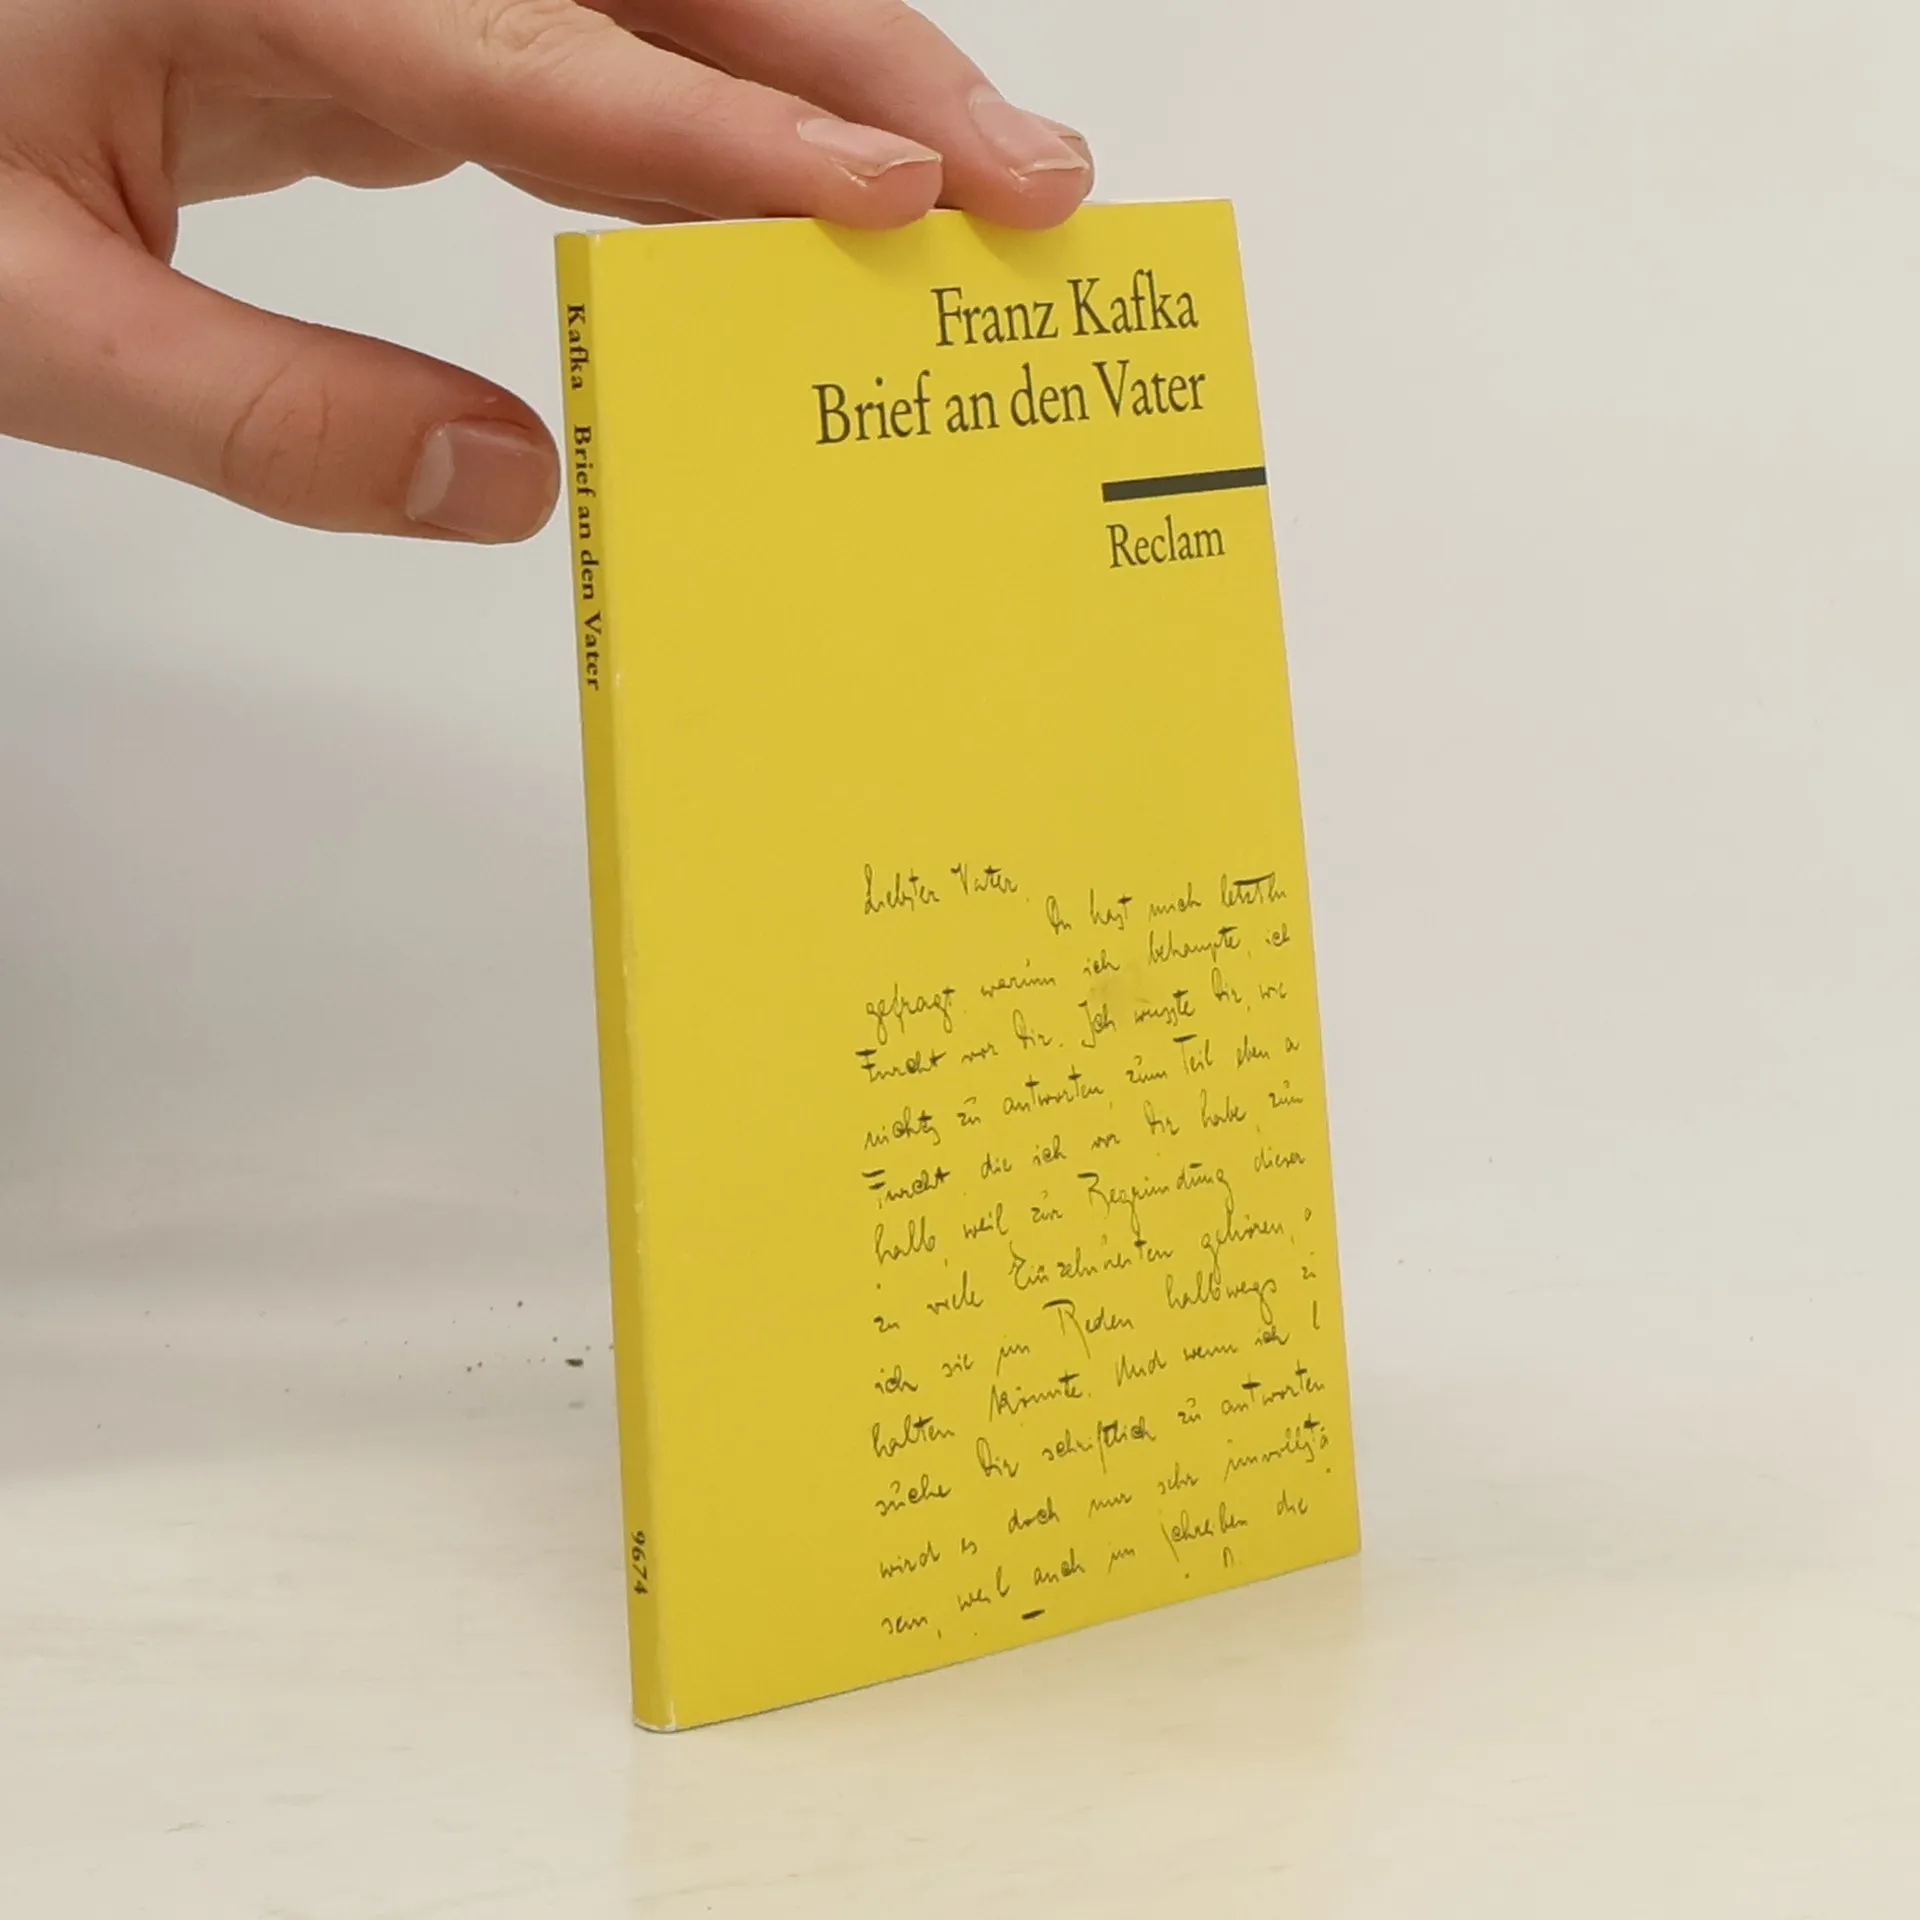 Franz Kafka
Brief an den Vater
Reclam
Kafka Brief an den Vater
9674
Liebster Vater,
Du hast mich letzthin
gefragt, warum ich behaupte, ich
Furcht vor Dir. Ich wusste Dir, wie
nichts zu antworten, zum Teil eben a
Furcht, die ich vor Dir habe, zum
halb, weil zur Begründung dieser
zu viele Einzelnheiten gehören,
ich sie im Reden halbwegs z
halten könnte. Und wenn ich
suche Dir schriftlich zu antworten
wird es doch nur sehr unvollstä
sein, weil auch im Schreiben die